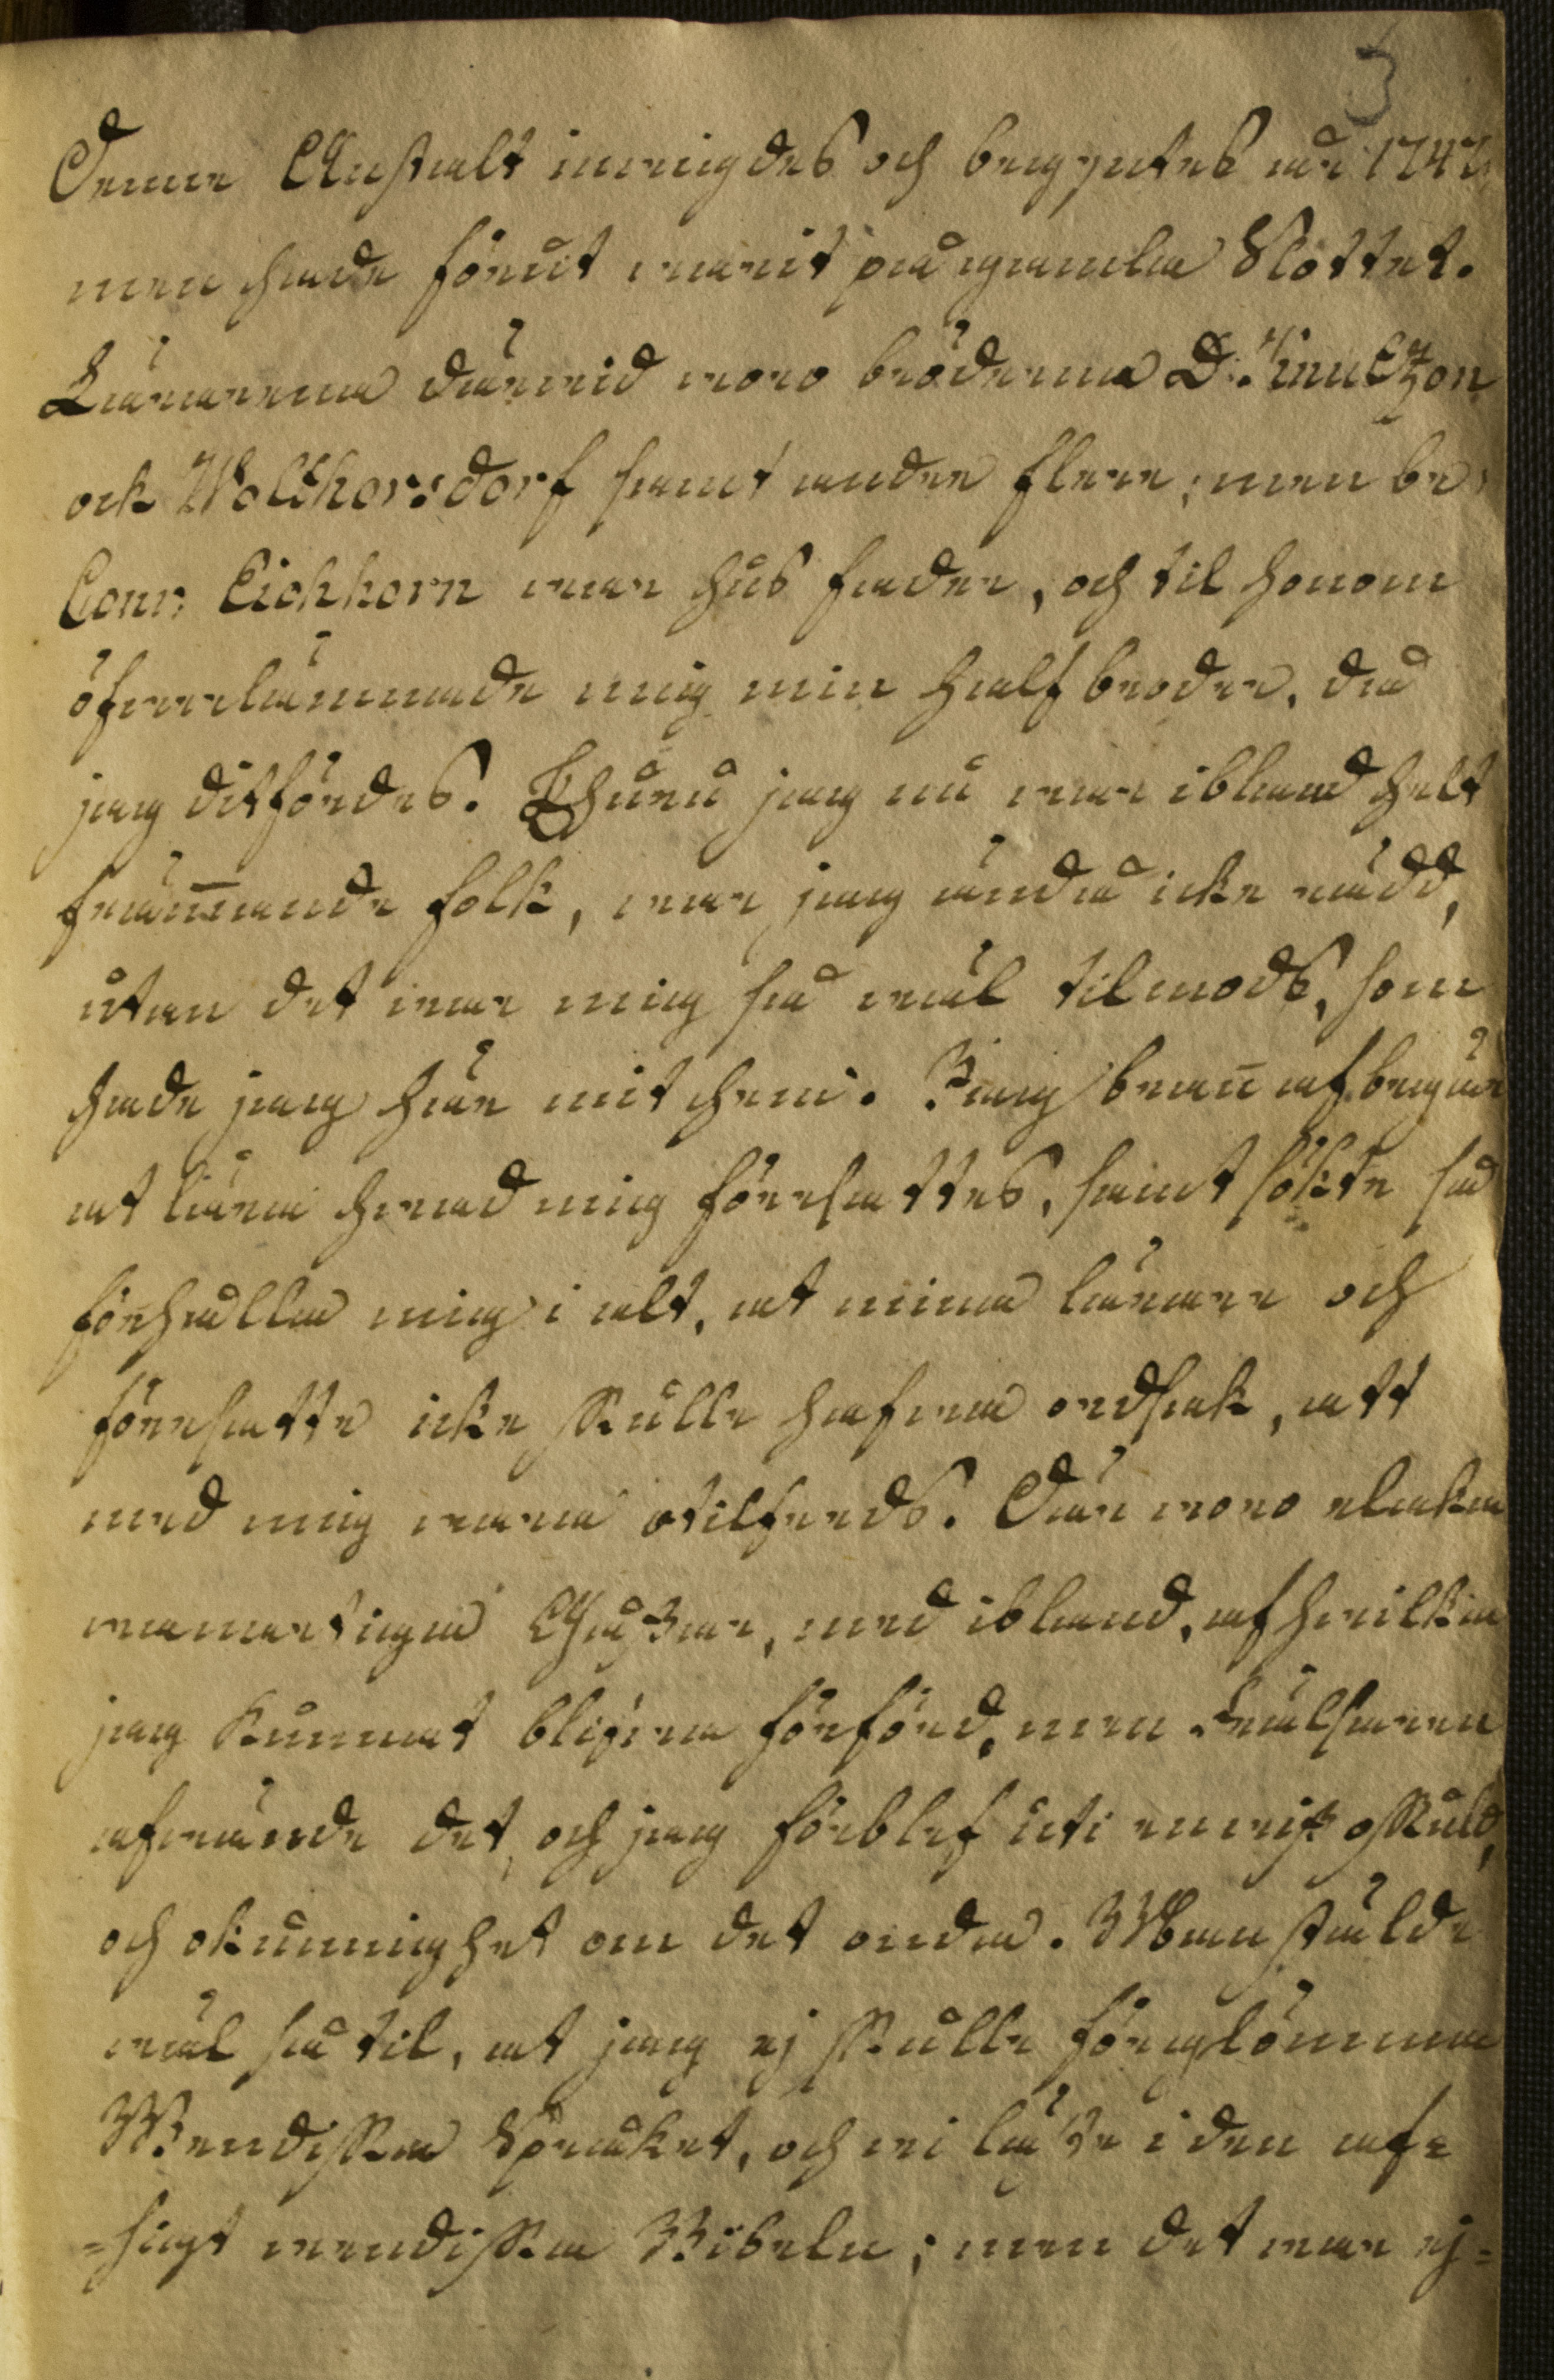 3
Denna Anstalt inwigdes och begyntes åhr 1747,
men hade förut warit på gamla Slottet.
Lärarena därwid woro bröderna D: 
och Wolthersdorf samt andre flere; men br:
Conr: Eichhorn war hus fader, och til honom
öfwerlämnade mig min half broder, då
jag ditfördes. Ehuru jag nu war ibland helt
främ̄ande folk, war jag ändå icke rädd,
utan det war mig så wäl tilmods, som
hade jag här mit hem. Jag bran̄ af begär
at lära hwad mig föresattes, samt sökte så
förhålla mig i alt, at mina lärare och
föresatte icke skulle hafwa ordsak, att
med mig wara otilfreds. Där woro elaka
wanartiga Gåßar, med ibland, af hwilka
jag kunnat blifwa förförd, men Frälsaren
afwände det, och jag förblef uti en wiß oskuld,
och okunnighet om det onda. Man stälde
wäl så til, at jag ej skulle förglömma
Wendiska Språket, och wi läste i den af-
-sigt wendiska Bibeln; men det war ej=